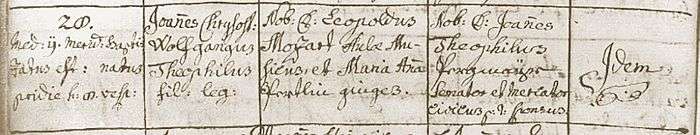 28.
med: 11. merid: baptiz
zatus est: natus
pridie h: 8. vesp:
Joañes Chrysost:
Wolfgangus
Theophilus
fil: leg:
Nob: D: Leopoldus
Mozart Aulæ Mu-
sicus, et Maria Aña
Pertlin giuges.
Nob: D: Joañes
Theophilus
Pergmayr
Senator et Mercator
civicus p: t: sponsus
Idem